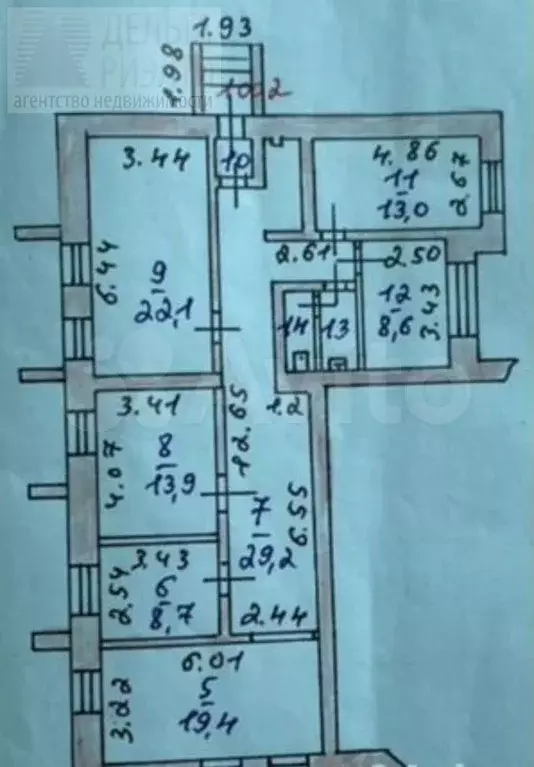 1.93
ДЕЛЬТА
РИЭЛТ
агентство недвижимости
1.98
10
3.44
6.44
9
22,1
4.86
11
13,0
2.67
2.61
2.50
12
8,6
3.43
14
13
1.2
12.65
3.41
8
13,9
4.07
7
29,2
6.55
3.43
6
8,7
2.54
2.44
6.01
5
19,4
3.22
Avito